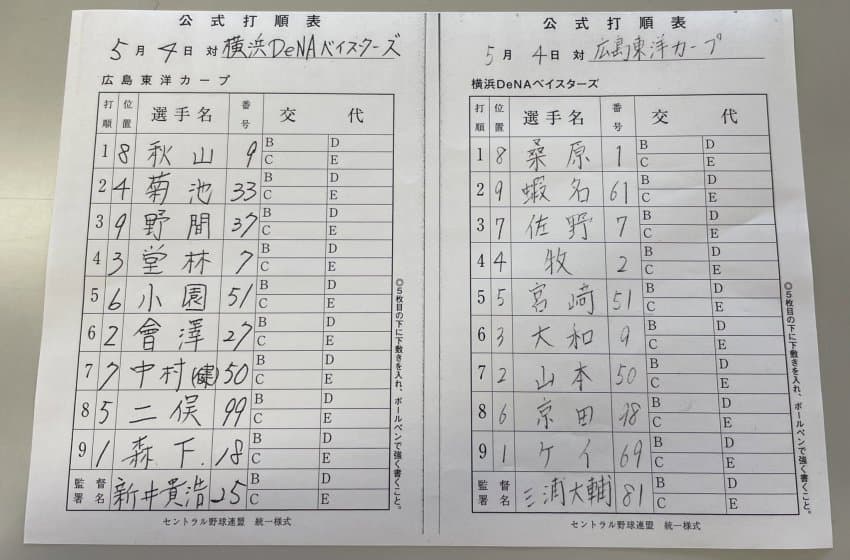 公式打順表
5月4日対横浜DeNAベイスターズ
広島東洋カープ
打順 位置 選手名 番号 交代
1 8 秋山 9 B D C E
2 4 菊池 33 B D C E
3 9 野間 37 B D C E
4 3 堂林 7 B D C E
5 6 小園 51 B D C E
6 2 會澤 27 B D C E
7 7 中村(健) 50 B D C E
8 5 二俣 99 B D C E
9 1 森下 18 B D C E
監督署名 新井貴浩 25 B D C E
◎5枚目の下に下敷きを入れ、ボールペンで強く書くこと。
セントラル野球連盟 統一様式
公式打順表
5月4日対広島東洋カープ
横浜DeNAベイスターズ
打順 位置 選手名 番号 交代
1 8 桑原 1 B D C E
2 9 蝦名 61 B D C E
3 7 佐野 7 B D C E
4 4 牧 2 B D C E
5 5 宮﨑 51 B D C E
6 3 大和 9 B D C E
7 2 山本 50 B D C E
8 6 京田 98 B D C E
9 1 ケイ 69 B D C E
監督署名 三浦大輔 81 B D C E
◎5枚目の下に下敷きを入れ、ボールペンで強く書くこと。
セントラル野球連盟 統一様式